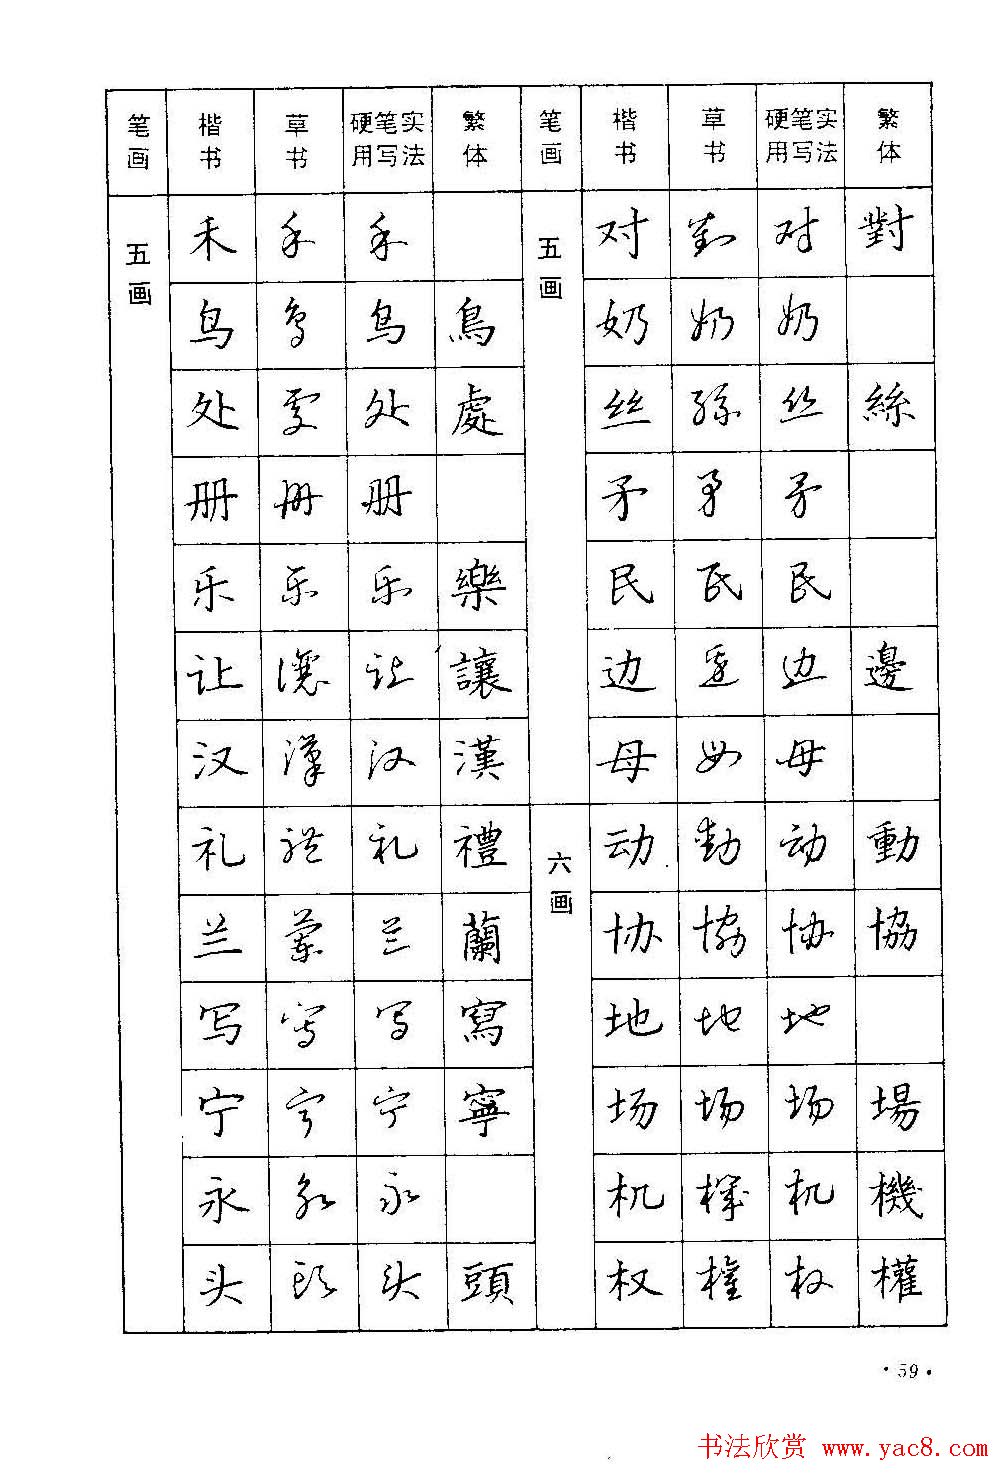 笔画 楷书 草书 硬笔实用写法 繁体 笔画 楷书 草书 硬笔实用写法 繁体
五画 禾 禾 禾 五画 对 對 对 對
鸟 鸟 鸟 鳥 奶 奶 奶
处 處 处 處 丝 絲 丝 絲
册 册 册 矛 矛 矛
乐 乐 乐 樂 民 民 民
让 讓 让 讓 边 邊 边 邊
汉 漢 汉 漢 母 母 母
礼 禮 礼 禮 六画 动 動 动 動
兰 蘭 兰 蘭 协 協 协 協
写 寫 写 寫 地 地 地
宁 寧 宁 寧 场 场 场 場
永 永 永 机 機 机 機
头 頭 头 頭 权 權 权 權
·59·
书法欣赏 www.yac8.com